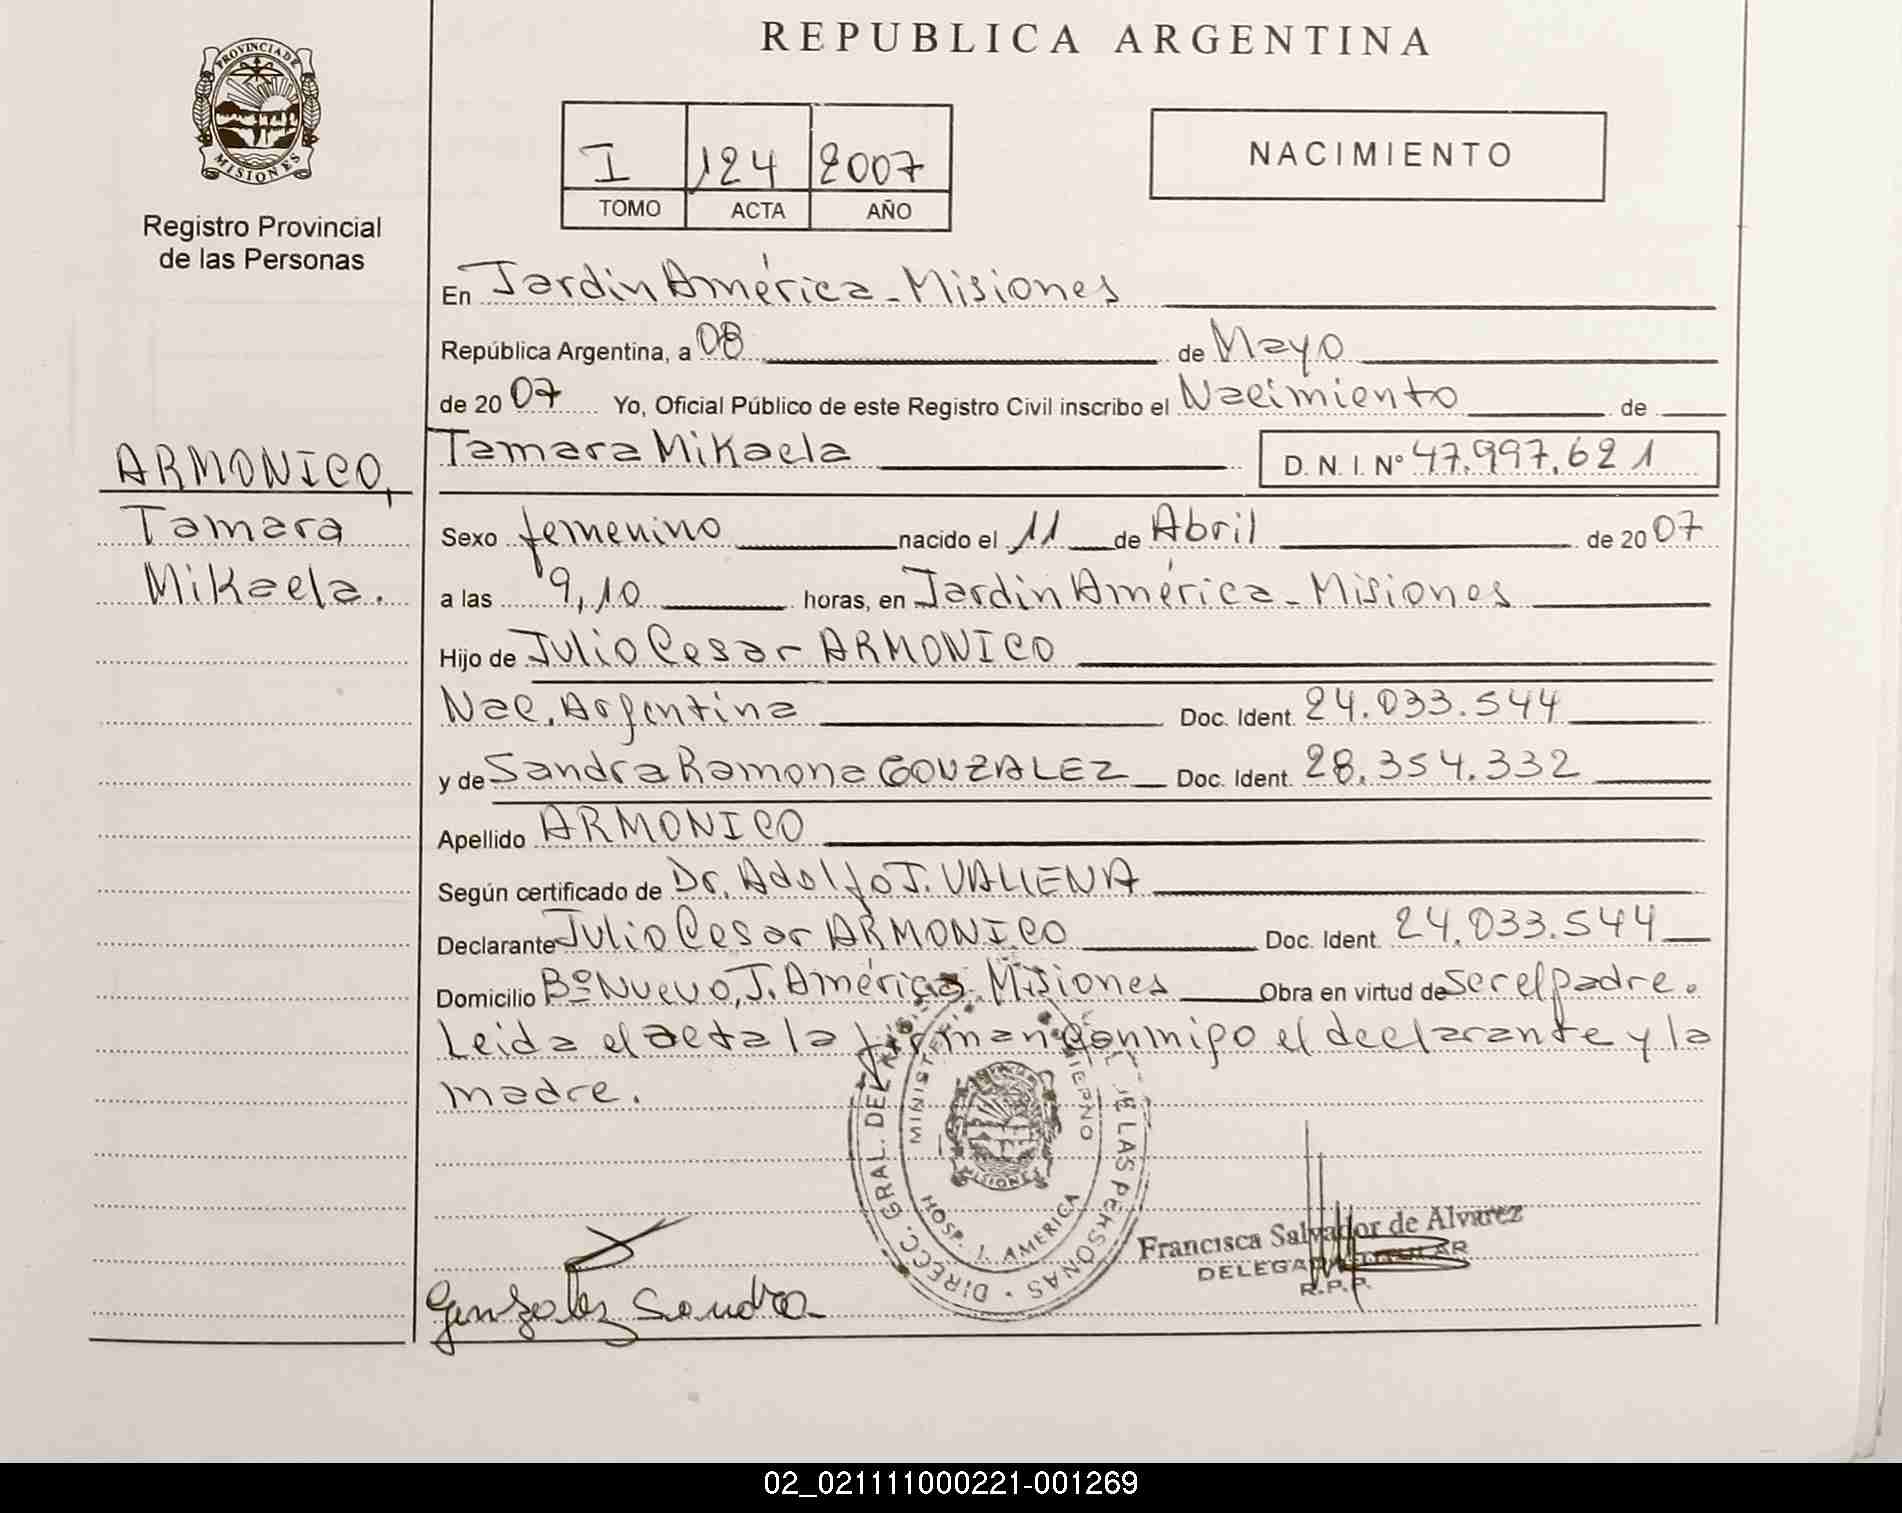 REPUBLICA ARGENTINA
PROVINCIA DE
MISIONES
Registro Provincial
de las Personas
I 124 2007
TOMO ACTA AÑO
NACIMIENTO
En Jardin América - Misiones
República Argentina, a 08 de Mayo
de 2007 Yo, Oficial Público de este Registro Civil inscribo el Nacimiento de
Tamara Mikaela D. N. I. Nº 47.997.621
ARMONICO,
Tamara
Mikaela.
Sexo femenino nacido el 11 de Abril de 2007
a las 9,10 horas, en Jardin América - Misiones
Hijo de Julio Cesar ARMONICO
Nac. Argentina Doc. Ident. 24.033.544
y de Sandra Ramona GONZALEZ Doc. Ident. 28.354.332
Apellido ARMONICO
Según certificado de Dr. Adolfo J. VALIENA
Declarante Julio Cesar ARMONICO Doc. Ident. 24.033.544
Domicilio Bº Nuevo, J. América Misiones Obra en virtud de ser el padre.
Leida el acta la firman conmigo el declarante y la
madre.
DIRECC. GRAL. DEL DE LAS PERSONAS
MINISTERIO
HOSP. J. AMERICA
MISIONES
Francisca Salvador de Alvarez
DELEGADA TITULAR
R.P.P.
Gonzalez Sandra
02_021111000221-001269